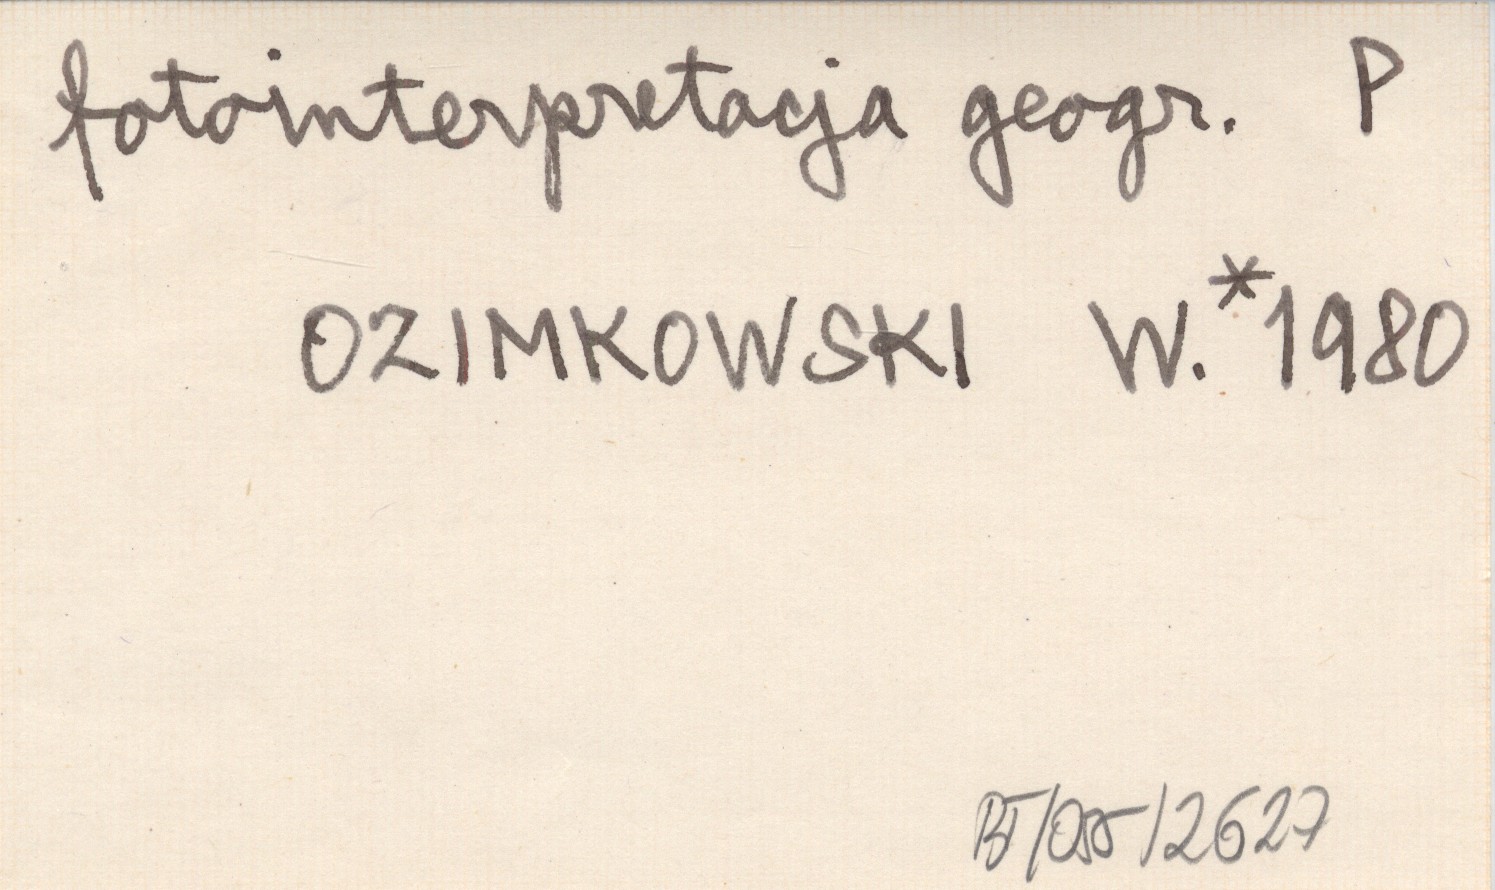 fotointerpretacja geogr. P
OZIMKOWSKI W.*1980
BT/055/2627